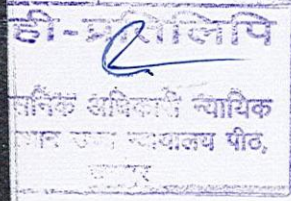 ही-प्रतिलिपि
सनिक अधिकारी न्यायिक
उच्च न्यायालय पीठ,